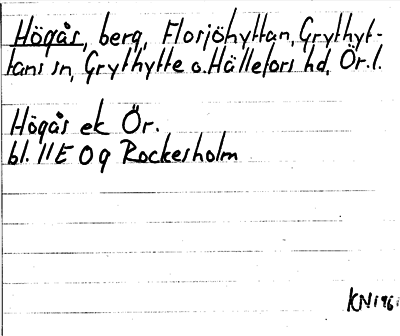 Högås, berg, Flosjöhyttan, Grythyt-
tans sn, Grythytte o. Hällefors hd, Ör. l.
Högås ek Ör.
bl. 11E 0g Rockesholm
KN 196